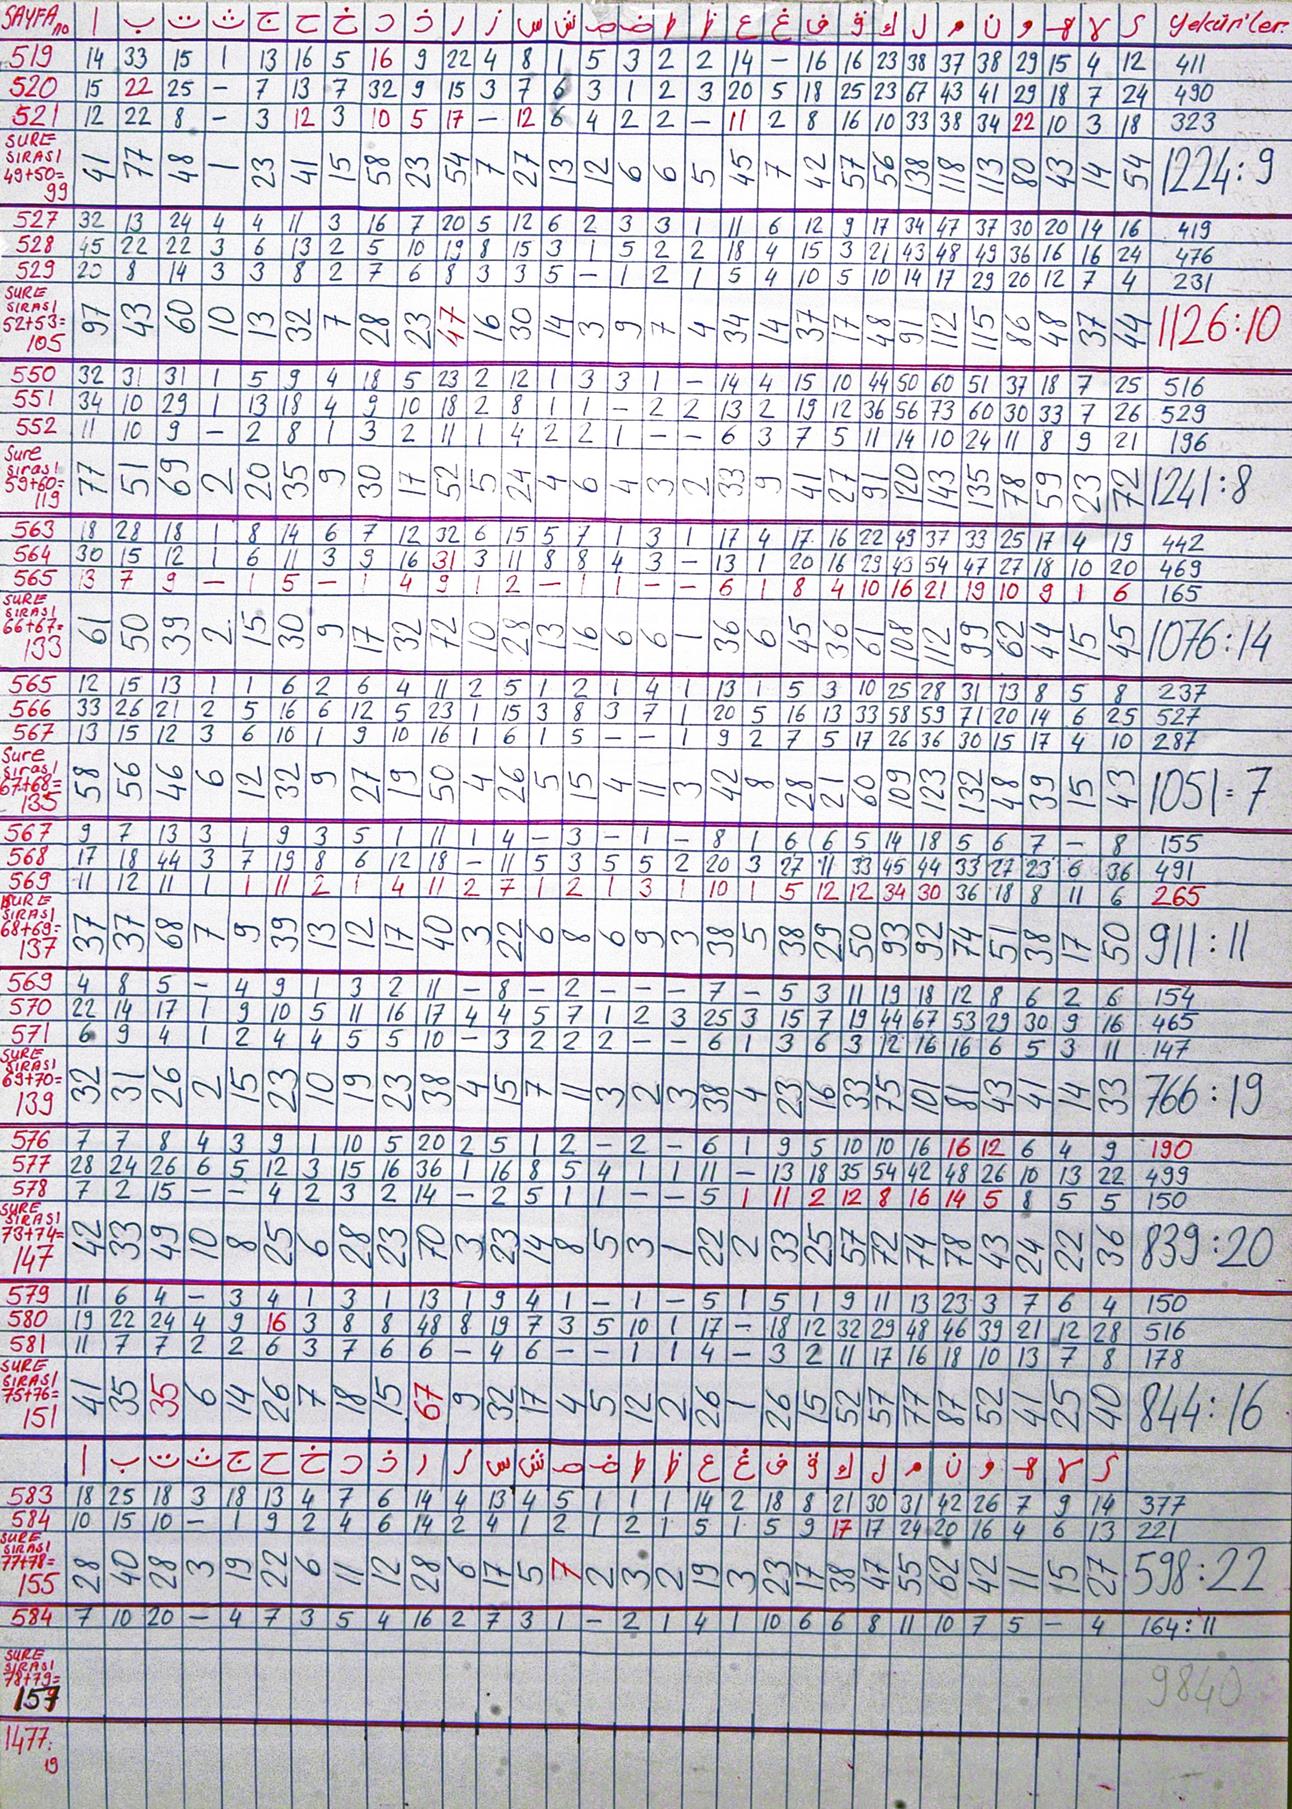 SAYFA no ا ب ت ث ج ح خ د ذ ر ز س ش ص ض ط ظ ع غ ف ق ك ل م ن و ه لا ى yekün'ler.
519 14 33 15 1 13 16 5 16 9 22 4 8 1 5 3 2 2 14 - 16 16 23 38 37 38 29 15 4 12 411
520 15 22 25 - 7 13 7 32 9 15 3 7 6 3 1 2 3 20 5 18 25 23 67 43 41 29 18 7 24 490
521 12 22 8 - 3 12 3 10 5 17 - 12 6 4 2 2 - 11 2 8 16 10 33 38 34 22 10 3 18 323
SURE SIRASI 49+50= 99 41 77 48 1 23 41 15 58 23 54 7 27 13 12 6 6 5 45 7 42 57 56 138 118 113 80 43 14 54 1224:9
527 32 13 24 4 4 11 3 16 7 20 5 12 6 2 3 3 1 11 6 12 9 17 34 47 37 30 20 14 16 419
528 45 22 22 3 6 13 2 5 10 19 8 15 3 1 5 2 2 18 4 15 3 21 43 48 49 36 16 16 24 476
529 20 8 14 3 3 8 2 7 6 8 3 3 5 - 1 2 1 5 4 10 5 10 14 17 29 20 12 7 4 231
SURE SIRASI 52+53= 105 97 43 60 10 13 32 7 28 23 47 16 30 14 3 9 7 4 34 14 37 17 48 91 112 115 86 48 37 44 1126:10
550 32 31 31 1 5 9 4 18 5 23 2 12 1 3 3 1 - 14 4 15 10 44 50 60 51 37 18 7 25 516
551 34 10 29 1 13 18 4 9 10 18 2 8 1 1 - 2 2 13 2 19 12 36 56 73 60 30 33 7 26 529
552 11 10 9 - 2 8 1 3 2 11 1 4 2 2 1 - - 6 3 7 5 11 14 10 24 11 8 9 21 196
Sure sırası 59+60= 119 77 51 69 2 20 35 9 30 17 52 5 24 4 6 4 3 2 33 9 41 27 91 120 143 135 78 59 23 72 1241:8
563 18 28 18 1 8 14 6 7 12 32 6 15 5 7 1 3 1 17 4 17 16 22 49 37 33 25 17 4 19 442
564 30 15 12 1 6 11 3 9 16 31 3 11 8 8 4 3 - 13 1 20 16 29 43 54 47 27 18 10 20 469
565 13 7 9 - 1 5 - 1 4 9 1 2 - 1 1 - - 6 1 8 4 10 16 21 19 10 9 1 6 165
SURE SIRASI 66+67= 133 61 50 39 2 15 30 9 17 32 72 10 28 13 16 6 6 1 36 6 45 36 61 108 112 99 62 44 15 45 1076:14
565 12 15 13 1 1 6 2 6 4 11 2 5 1 2 1 4 1 13 1 5 3 10 25 28 31 13 8 5 8 237
566 33 26 21 2 5 16 6 12 5 23 1 15 3 8 3 7 1 20 5 16 13 33 58 59 71 20 14 6 25 527
567 13 15 12 3 6 10 1 9 10 16 1 6 1 5 - - 1 9 2 7 5 17 26 36 30 15 17 4 10 287
Sure sırası 67+68= 135 58 56 46 6 12 32 9 27 19 50 4 26 5 15 4 11 3 42 8 28 21 60 109 123 132 48 39 15 43 1051=7
567 9 7 13 3 1 9 3 5 1 11 1 4 - 3 - 1 - 8 1 6 6 5 14 18 5 6 7 - 8 155
568 17 18 44 3 7 19 8 6 12 18 - 11 5 3 5 5 2 20 3 27 11 33 45 44 33 27 23 6 36 491
569 11 12 11 1 1 11 2 1 4 11 2 7 1 2 1 3 1 10 1 5 12 12 34 30 36 18 8 11 6 265
SURE SIRASI 68+69= 137 37 37 68 7 9 39 13 12 17 40 3 22 6 8 6 9 3 38 5 38 29 50 93 92 74 51 38 17 50 911:11
569 4 8 5 - 4 9 1 3 2 11 - 8 - 2 - - - 7 - 5 3 11 19 18 12 8 6 2 6 154
570 22 14 17 1 9 10 5 11 16 17 4 4 5 7 1 2 3 25 3 15 7 19 44 67 53 29 30 9 16 465
571 6 9 4 1 2 4 4 5 5 10 - 3 2 2 2 - - 6 1 3 6 3 12 16 16 6 5 3 11 147
SURE SIRASI 69+70= 139 32 31 26 2 15 23 10 19 23 38 4 15 7 11 3 2 3 38 4 23 16 33 75 101 81 43 41 14 33 766:19
576 7 7 8 4 3 9 1 10 5 20 2 5 1 2 - 2 - 6 1 9 5 10 10 16 16 12 6 4 9 190
577 28 24 26 6 5 12 3 15 16 36 1 16 8 5 4 1 1 11 - 13 18 35 54 42 48 26 10 13 22 499
578 7 2 15 - - 4 2 3 2 14 - 2 5 1 1 - - 5 1 11 2 12 8 16 14 5 8 5 5 150
SURE SIRASI 73+74= 147 42 33 49 10 8 25 6 28 23 70 3 23 14 8 5 3 1 22 2 33 25 57 72 74 78 43 24 22 36 839:20
579 11 6 4 - 3 4 1 3 1 13 1 9 4 1 - 1 - 5 1 5 1 9 11 13 23 3 7 6 4 150
580 19 22 24 4 9 16 3 8 8 48 8 19 7 3 5 10 1 17 - 18 12 32 29 48 46 39 21 12 28 516
581 11 7 7 2 2 6 3 7 6 6 - 4 6 - - 1 1 4 - 3 2 11 17 16 18 10 13 7 8 178
SURE SIRASI 75+76= 151 41 35 35 6 14 26 7 18 15 67 9 32 17 4 5 12 2 26 1 26 15 52 57 77 87 52 41 25 40 844:16
ا ب ت ث ج ح خ د ذ ر ز س ش ص ض ط ظ ع غ ف ق ك ل م ن و ه لا ى
583 18 25 18 3 18 13 4 7 6 14 4 13 4 5 1 1 1 14 2 18 8 21 30 31 42 26 7 9 14 377
584 10 15 10 - 1 9 2 4 6 14 2 4 1 2 1 2 1 5 1 5 9 17 17 24 20 16 4 6 13 221
SURE SIRASI 77+78= 155 28 40 28 3 19 22 6 11 12 28 6 17 5 7 2 3 2 19 3 23 17 38 47 55 62 42 11 15 27 598:22
584 7 10 20 - 4 7 3 5 4 16 2 7 3 1 - 2 1 4 1 10 6 6 8 11 10 7 5 - 4 164:11
SURE SIRASI 78+79= 157 9840
1477:
19